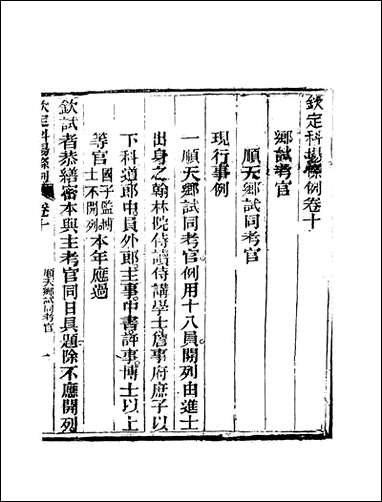 欽定科場條例卷十
鄉試考官
順天鄉試同考官
現行事例
一順天鄉試同考官例用十八員開列由進士
出身之翰林院侍讀侍講學士詹事府庶子以
下科道郎中員外郎主事中書評事博士以上
等官國子監博士不開列本年應過
欽試者恭繕密本與主考官同日具題除不應開列
欽定科場條例 卷十
順天鄉試同考官 一